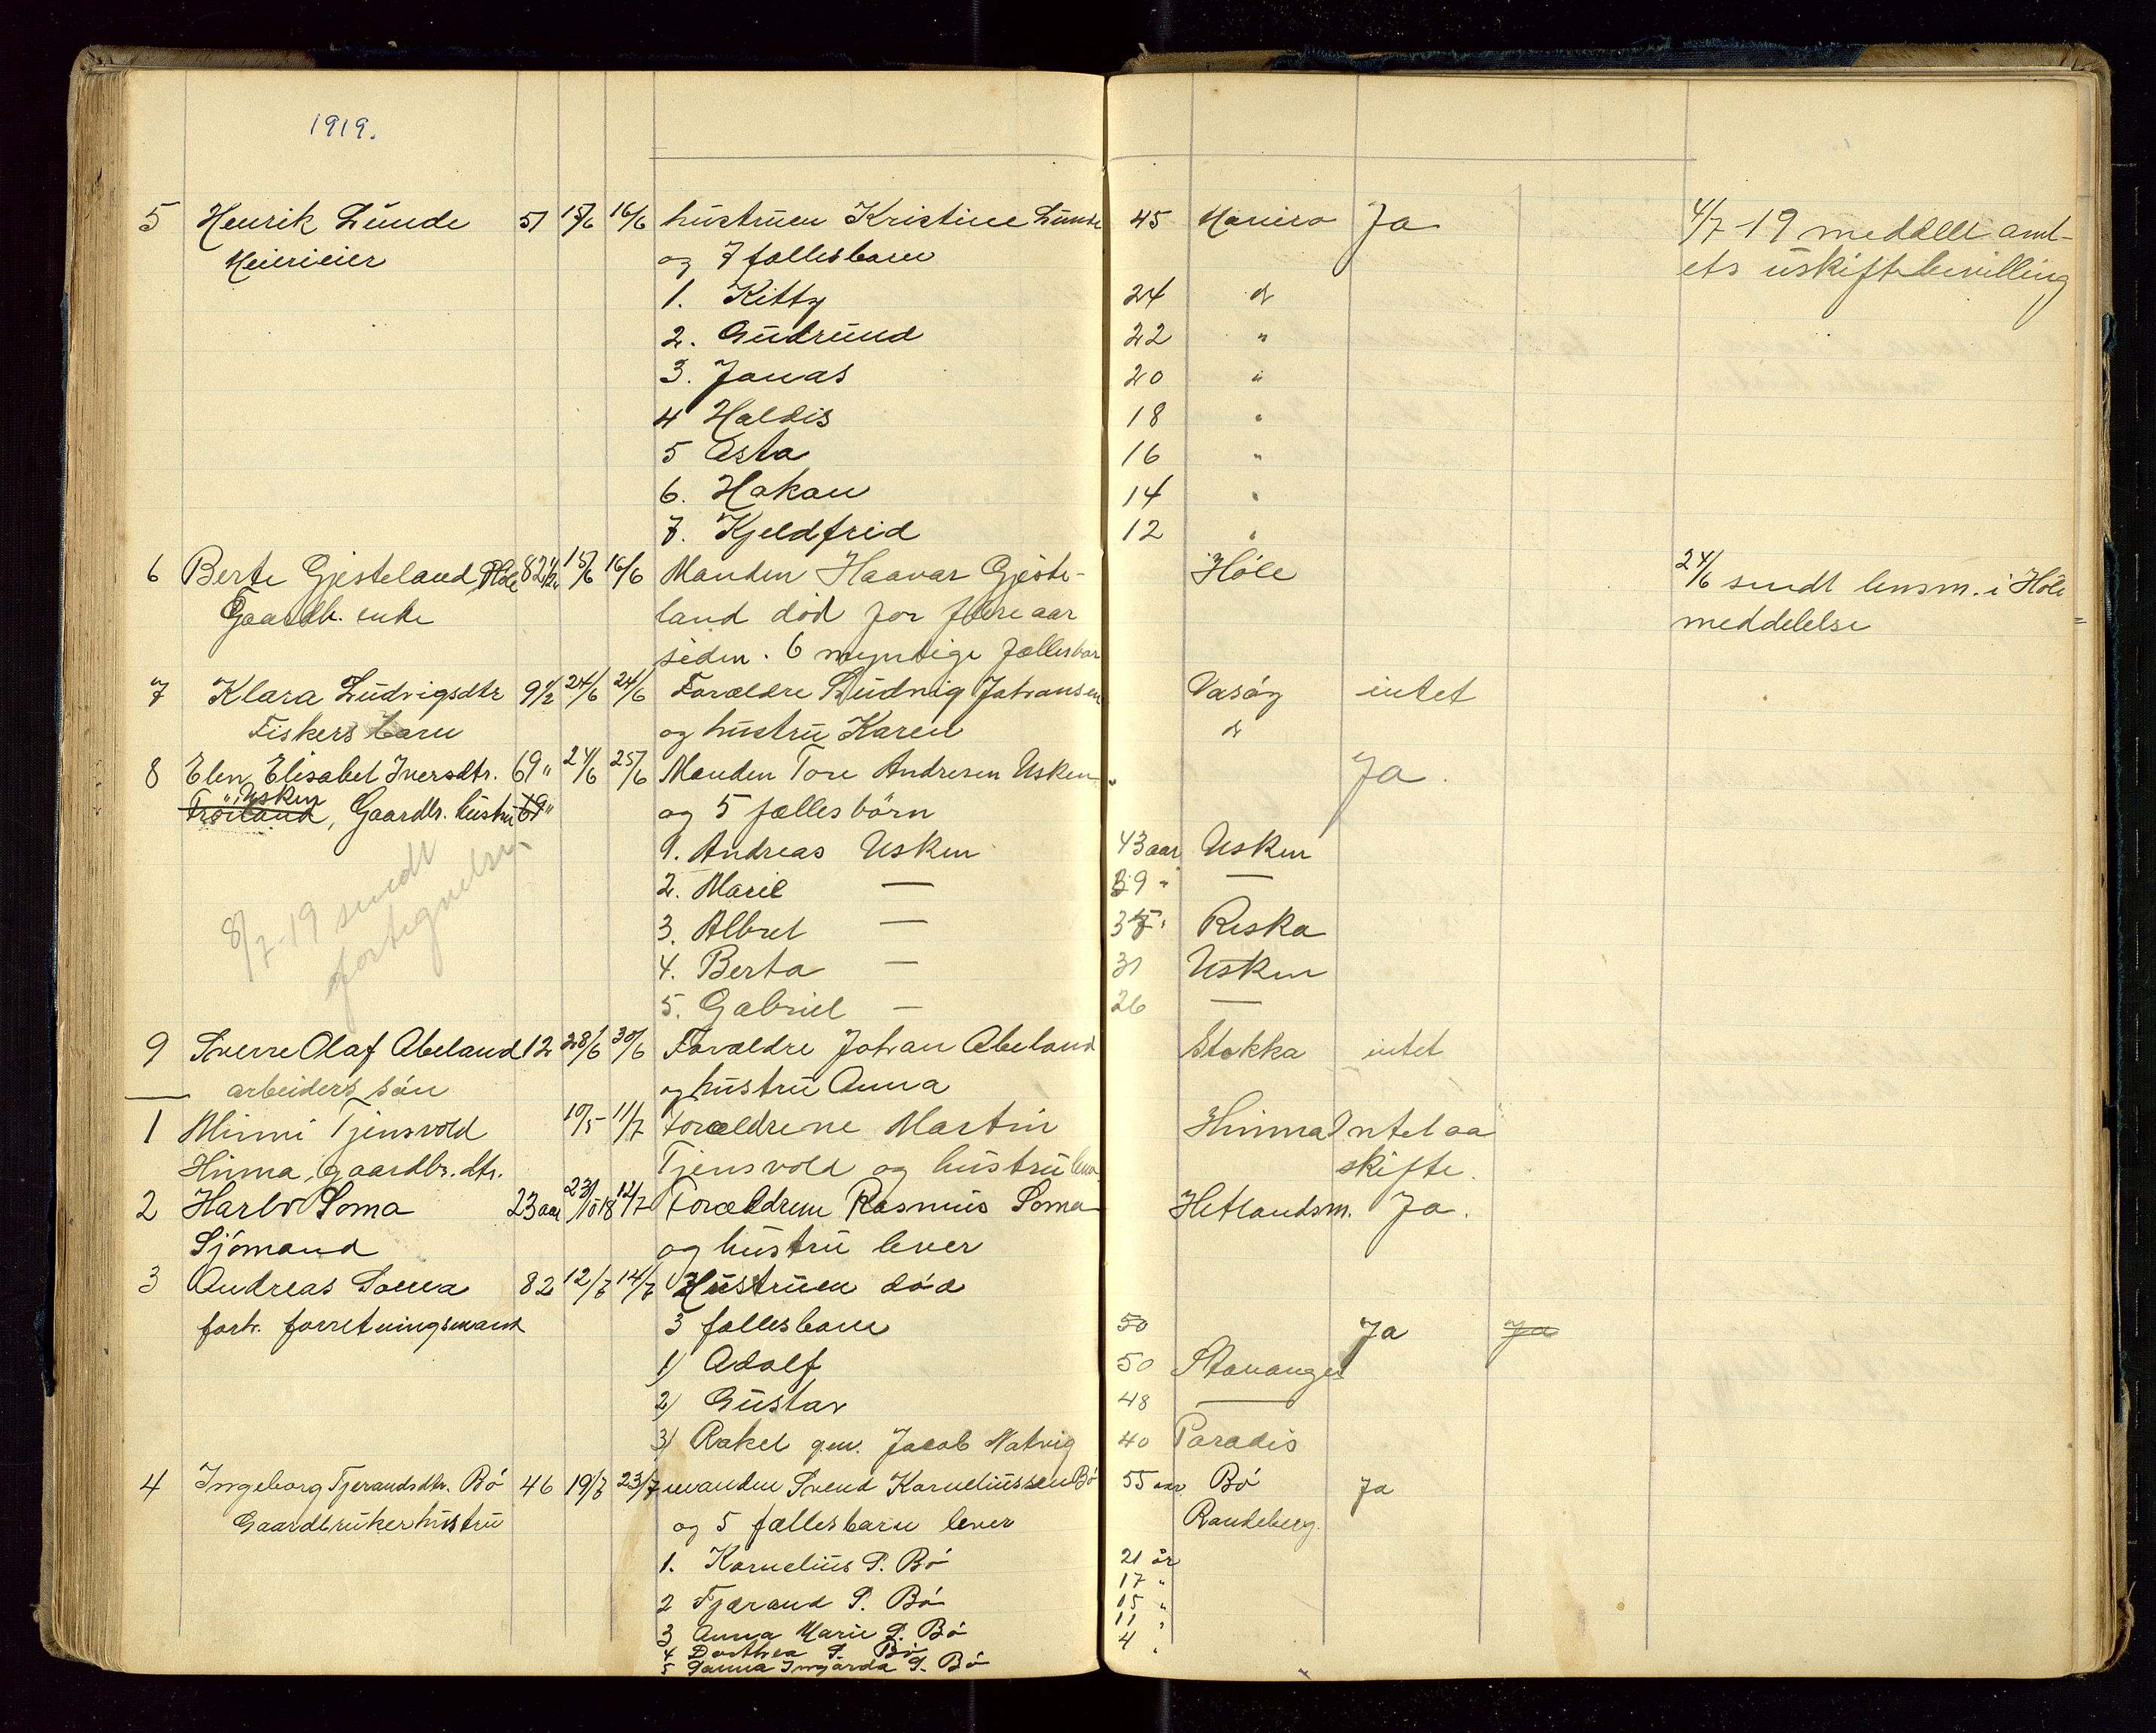 1919.
5 Henrik Lunde 51 15/6 16/6 hustruen Kristine Lunde 45 Mariero Ja 4/7-19 meddelt amt-
Meierieier og 7 fællesbarn ets uskiftebevilling
1. Kitty 24 d
2. Gudrund 22 "
3. Jonas 20 "
4 Haldis 18 "
5 Asta 16 "
6. Hakon 14 "
7. Kjeldfrid 12 "
6 Berte Gjesteland, Høle 82 1/2 15/6 16/6 Manden Haavar Gjeste- Høle 24/6 sendt lensm. i Høle
Gaardb. enke land død for flere aar meddelelse
siden. 6 myndige fællesbar
7 Klara Ludvigsdtr 9 1/2 24/6 24/6 Forældre Ludvig Johansen Vasøy intet
Fiskers barn og hustru Karen d
8 Elen Elisabet Iversdtr. 69 " 24/6 25/6 Manden Tore Andresen Usken " Ja.
"i Usken
Frøiland, Gaardbr. hustru 69 " og 5 fælles børn
1. Andreas Usken 43 aar Usken
8/7-19 sendt
fortegnelsen
2. Marie — 39 " —
3. Albret — 37 " Riska
4. Berta — 31 Usken
5. Gabriel — 26 —
9 Sverre Olaf Abeland 12 28/6 30/6 Forældre Johan Abeland Stokka intet
arbeiders søn og hustru Anna
1 Minni Tjensvold 10/5- 11/7 Forældrene Martin Hinna Intet aa
Hinna, gaardbr. dtr. Tjensvold og hustru lever skifte.
2 Harbo Soma 23 aar 23/10 18 12/7 Forældrene Rasmus Soma Hetlandsm. Ja.
Sjømand og hustru lever
3 Andreas Soma 82 12/7 14/7 Hustruen død
forh. forretningsmand 3 fællesbarn 50 Ja Ja
1) Adolf 50 Stavanger
2) Gustav 48 —
3) Rakel gm. Jacob Natvig 40 Paradis
4 Ingeborg Tjerandsdtr. Bø 46 19/7 23/7 manden Svend Korneliussen Bø 55 aar Bø Ja
Gaardbrukerhustru og 5 fællesbarn lever Randeberg.
1. Kornelius S. Bø 21 år
2 Tjærand S. Bø 17 "
3 Anna Marie S. Bø 15 "
4 Dorthea S. Bø 11 "
5 Sanna Ingarda S. Bø 4 "